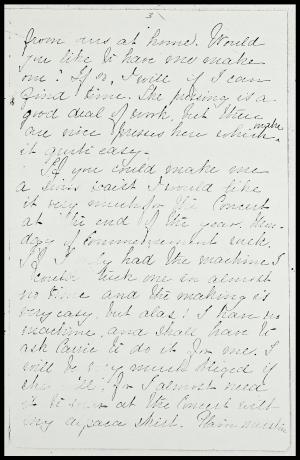 3
from ours at home. Would
you like to have me make
one? If so, I will if I can
find time. The pressing is a
good deal of work, but there
are nice presses here which make
it quite easy.
If you could make me
a waist I would like
it very much for the Concert
at the end of the year,
day of Commencement week.
If I only had the machine I
could tuck one in almost
no time and the making is
very easy, but alas! I have no
machine, and shall have to
ask Carrie to do it for me. I
will be very much obliged if
she will; for I almost need
it to wear at the Concert with
my alpaca skirt. Plain